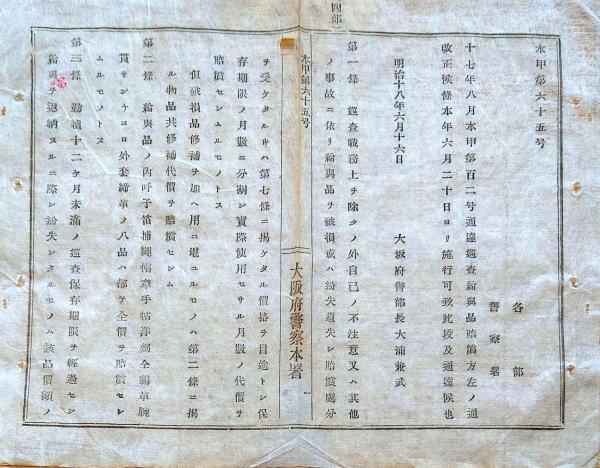 本甲第六十五号
各部
警察署
十七年八月本甲第百二号通達巡査給与品賠償方左ノ通
改正候條本年六月二十日ヨリ施行可致此段及通達候也
明治十八年六月十六日
大坂府警部長大浦兼武
第一條 巡査職務上ヲ除クノ外自己ノ不注意又ハ其他
ノ事故ニ依リ給與品ヲ破損或ハ紛失遺失シ賠償處分
四部
本甲第六十五号
大阪府警察本署
一
ヲ受ケタルトキハ第七條ニ揭ケタル價格ヲ目途トシ保
存期限ノ月數ニ分割シ實際使用セサル月數ノ代價ヲ
賠償セシムルモノトス
但破損品修補ヲ加ヘ用ニ堪ユルモノハ第二條ニ揭
ル物品共修補代價ヲ賠償セシム
第二條 給與品ノ內呼子笛捕繩帽章手帖洋劍全
革腕
貫サンケヨロ外套締革ノ八品ハ都テ全價ヲ賠償セシ
ムルモノトス
第三條 勤續十二ケ月未滿ノ巡査保存期限ヲ經過セシ
給與品ヲ返納スルニ際シ紛失シタルモノハ該品價額ノ